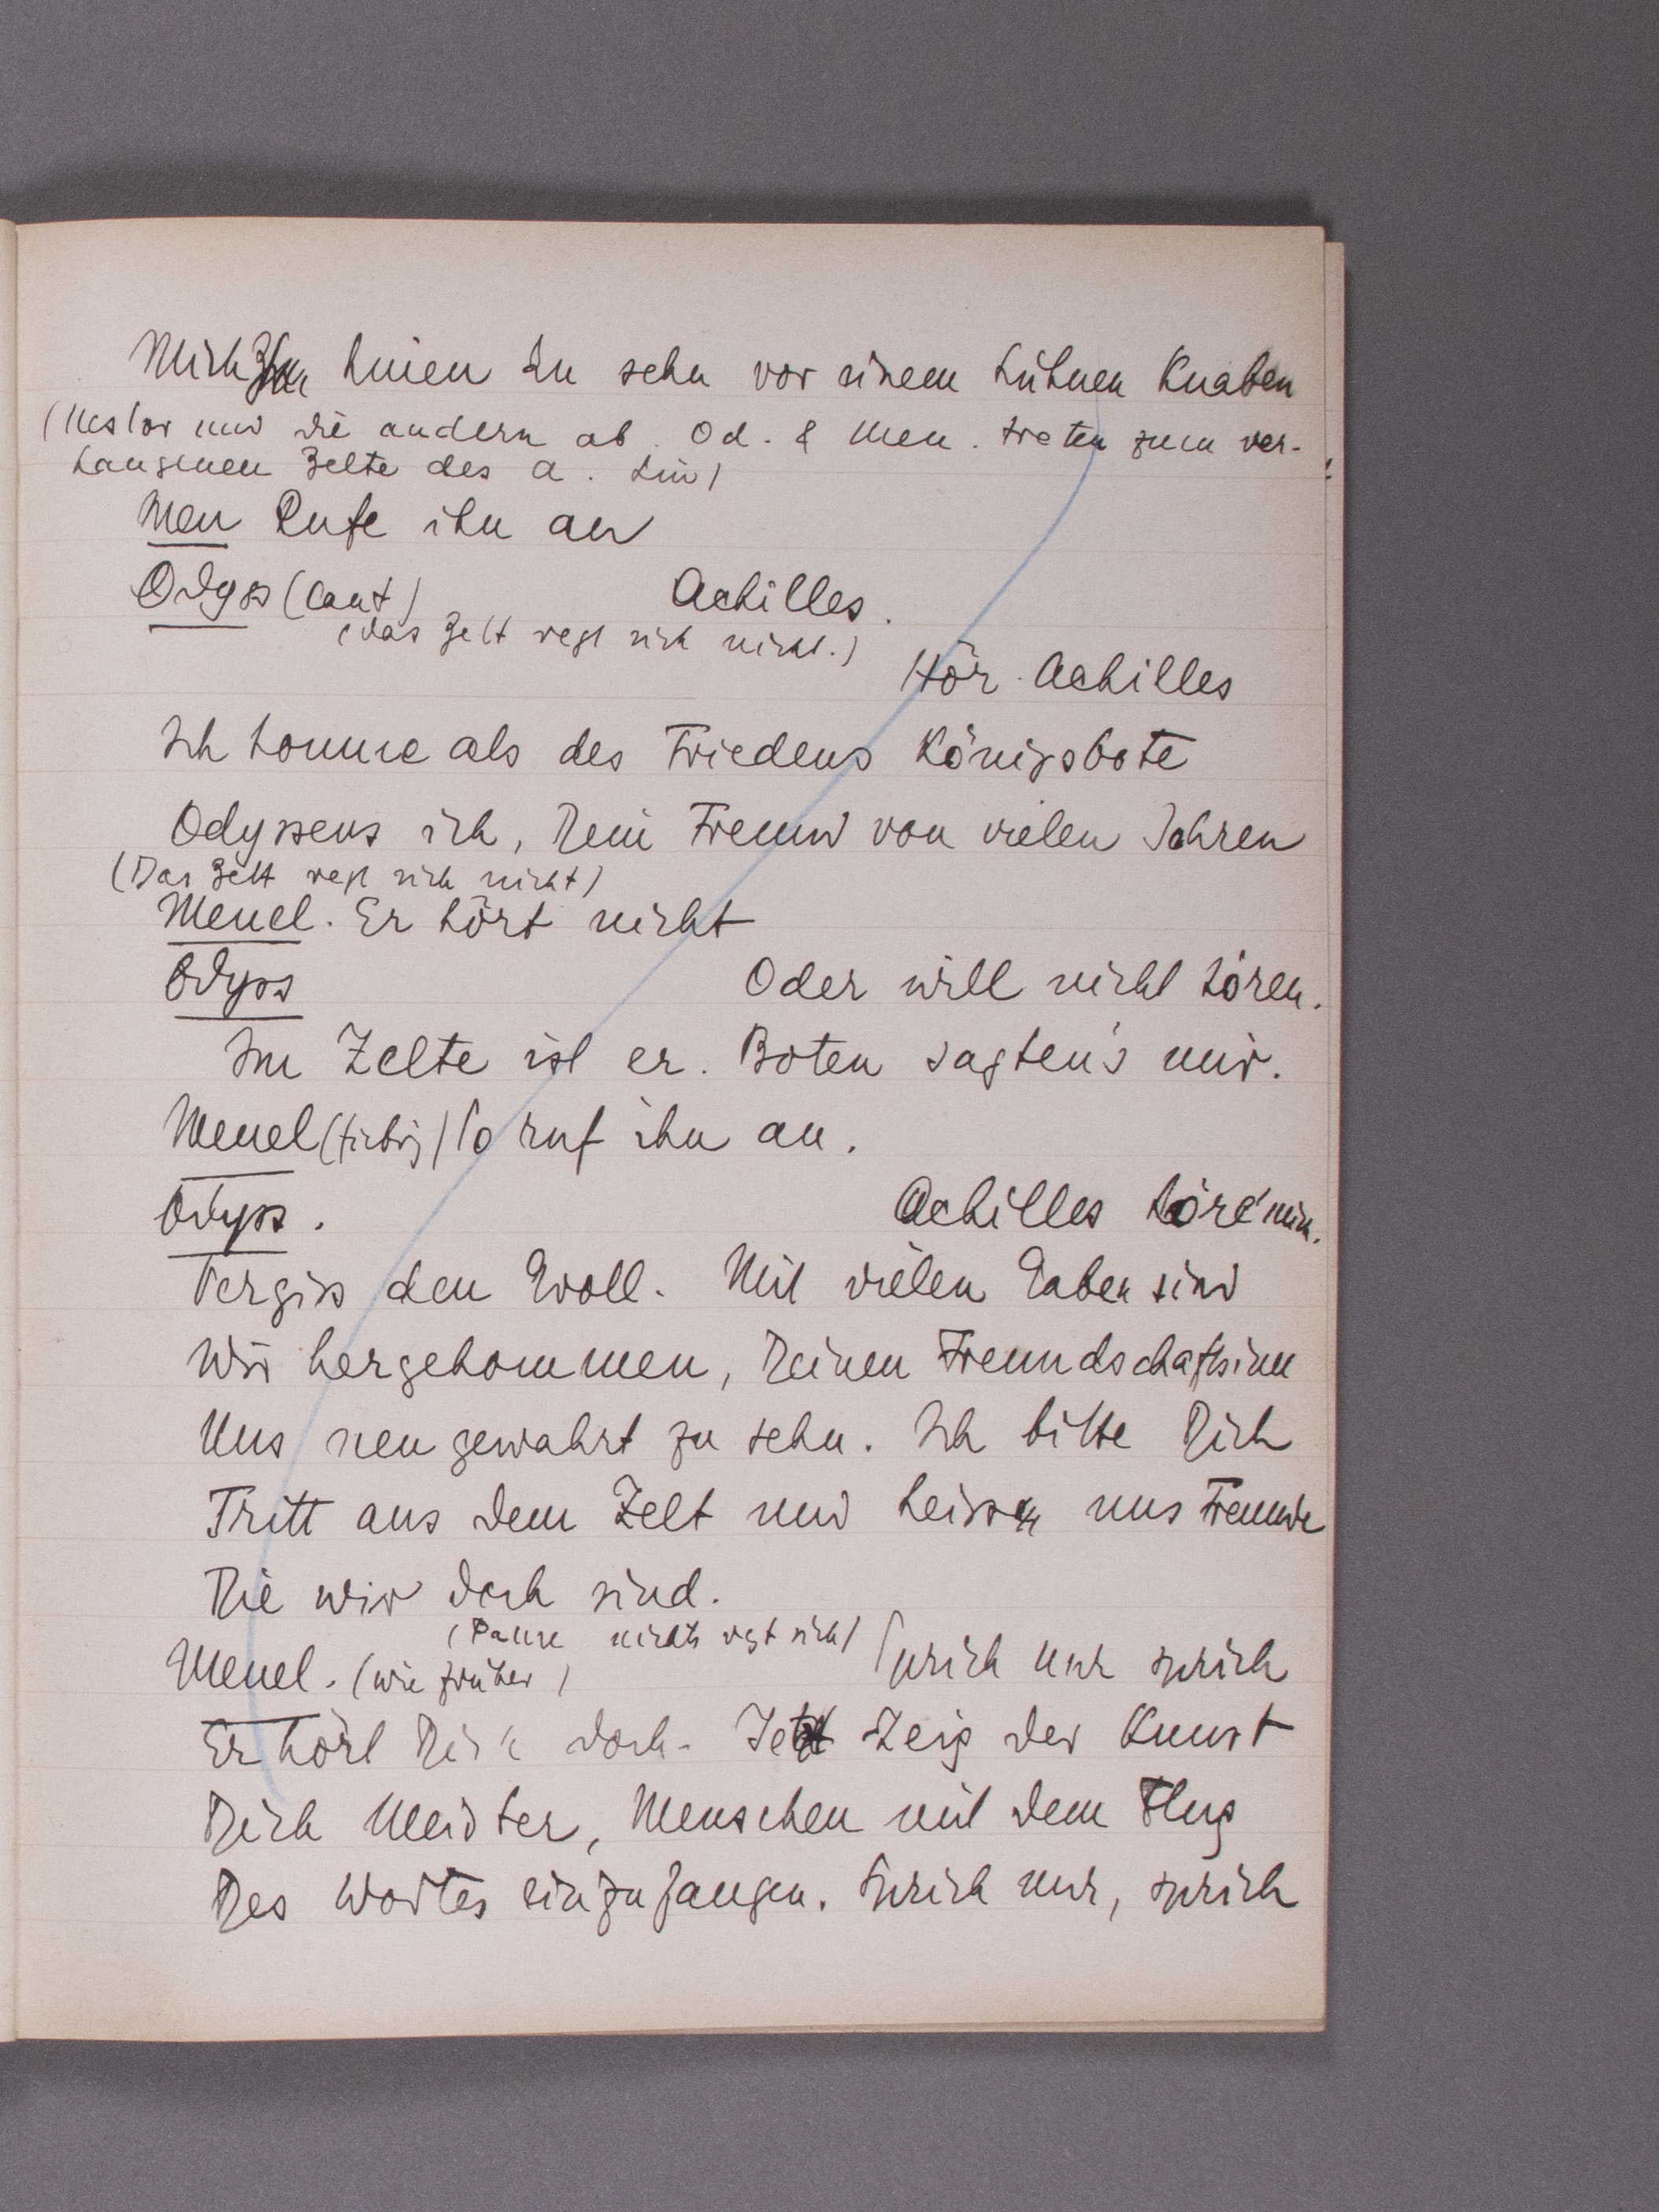 Mich knien zu sehn vor einem kühnen Knaben
(Nestor und die andern ab. Od. & Men. treten zum ver-
hangenen Zelte des A. hin)
Men Rufe ihn an
Odyss (laut) Achilles.
(das Zelt regt sich nicht.)
Hör Achilles
Ich komme als des Friedens Königsbote
Odysseus ich, Dein Freund von vielen Jahren
(Das Zelt regt sich nicht)
Menel. Er hört nicht
Odyss Oder will nicht hören.
Im Zelte ist er. Boten sagten's mir.
Menel So ruf ihn an.
Odyss. Achilles höre mich.
Vergiss den Groll. Mit vielen Gaben sind
Wir hergekommen, Deinen Freundschaftsinn
Uns neu gewahrt zu sehn. Ich bitte Dich
Tritt aus dem Zelt und heiss uns Freunde
Die wir doch sind.
(Pause nichts regt sich)
Menel. (wie früher) Sprich nur sprich
Er hört Dich doch. Jetzt zeig der Kunst
Dich Meister, Menschen mit dem Flug
Des Wortes einzufangen. Sprich nur, sprich